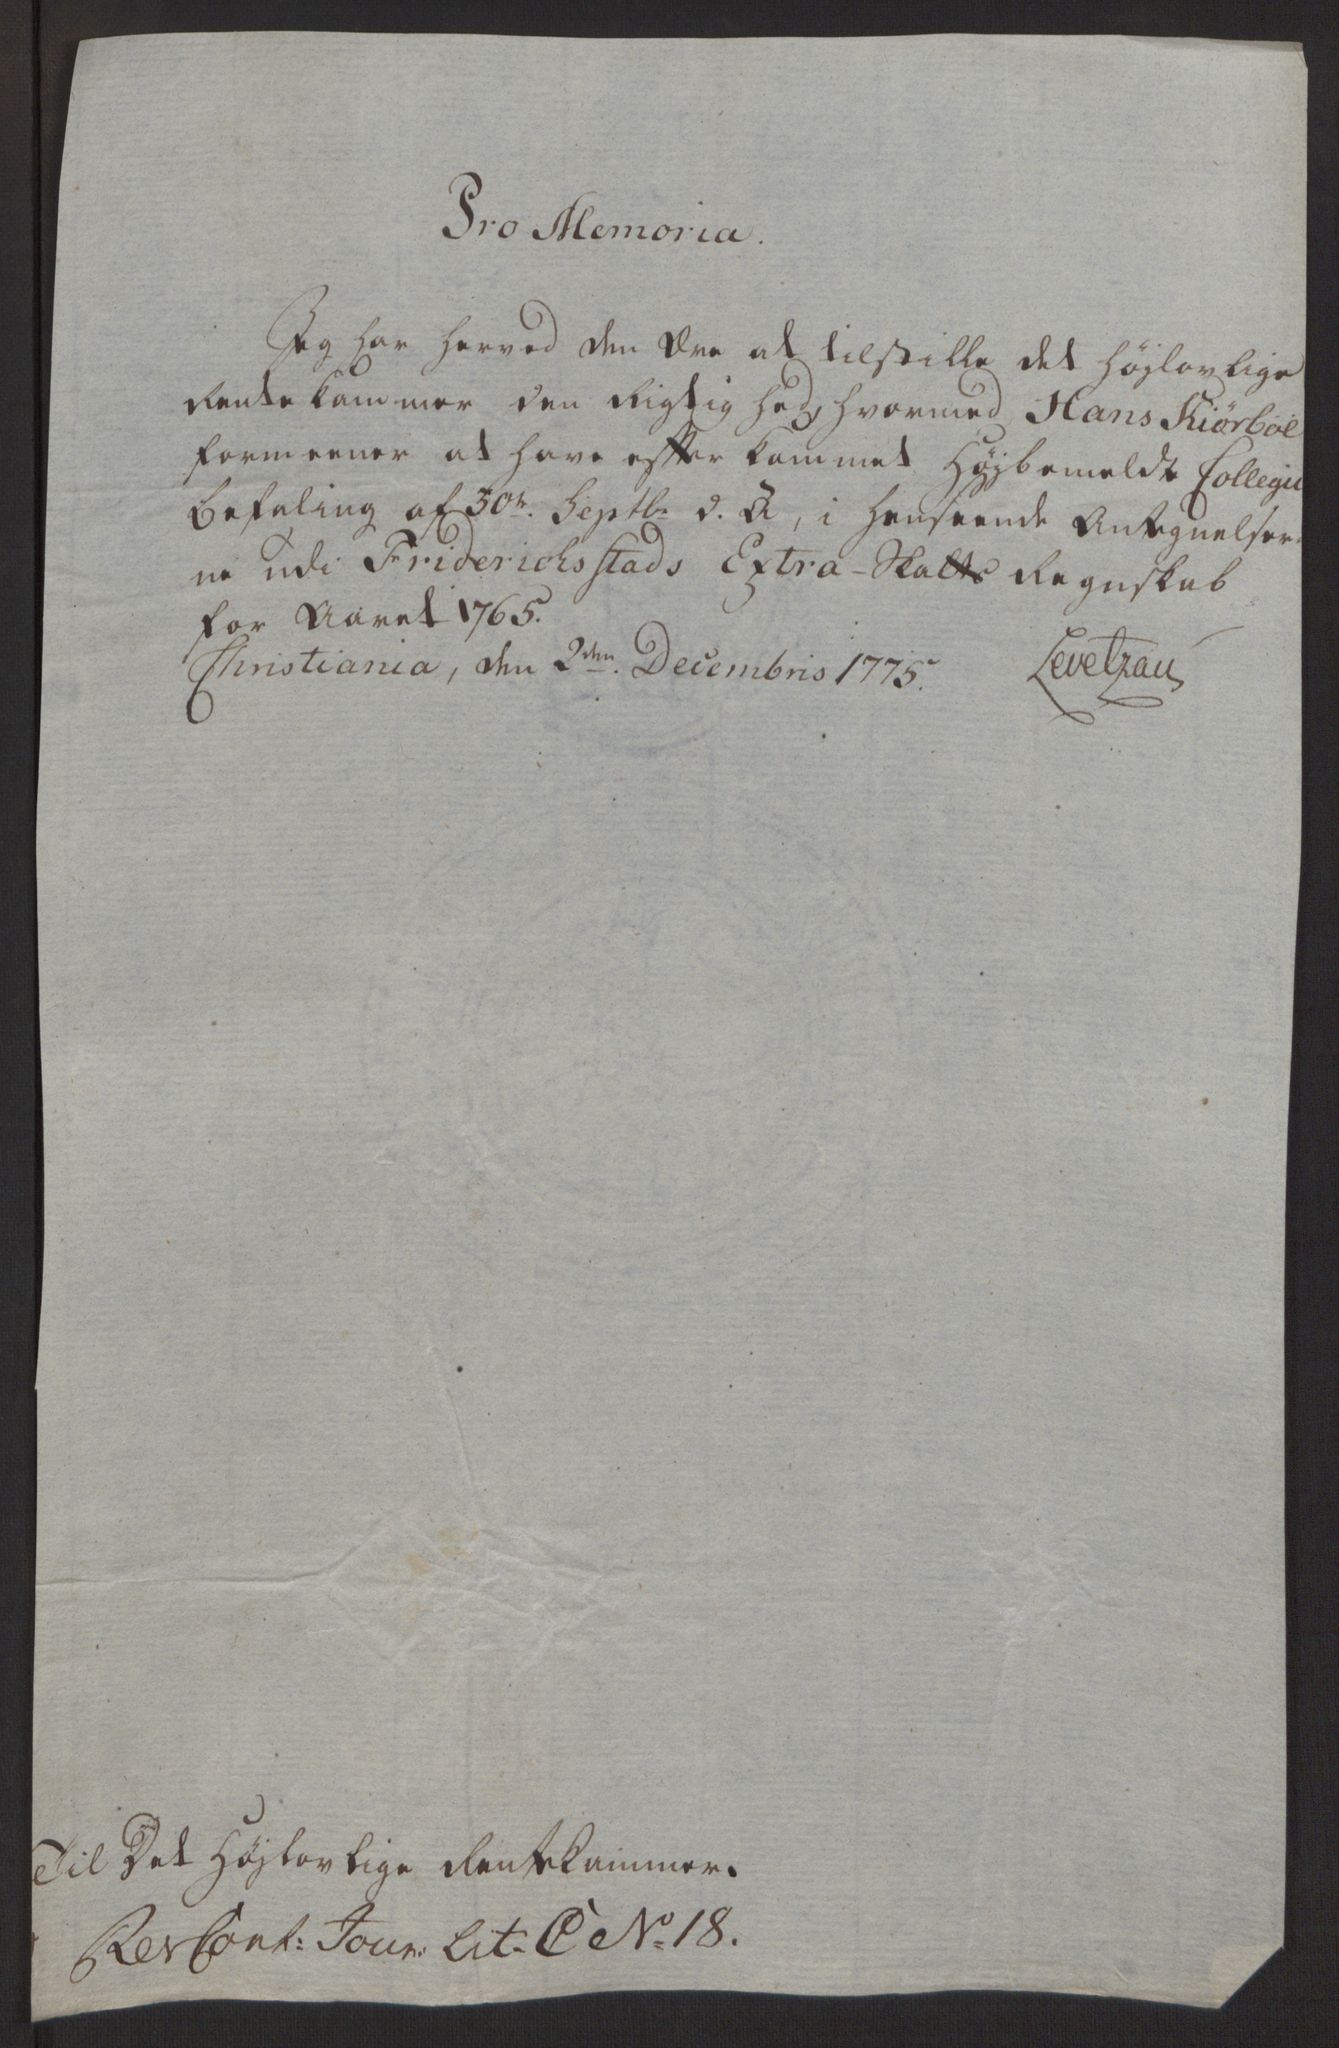 Pro Memoria.
Jeg har herved den Ære at tilstille det højlovlige
Rentekammer den Rigtighed, hvormed Hans Kiörboe
formeener at have efterkommet Højbemeldte Collegii
Befaling af 30te Septbr d. A, i henseende Antegnelser-
ne udi Friderichsstads Extra-Skatts Regnskab
for Aaret 1765.
Christiania, den 2den Decembris 1775. Levetzau
Til Det Højlovlige Rentekammer.
Rev Cont: Jour. Lit. C No 18.